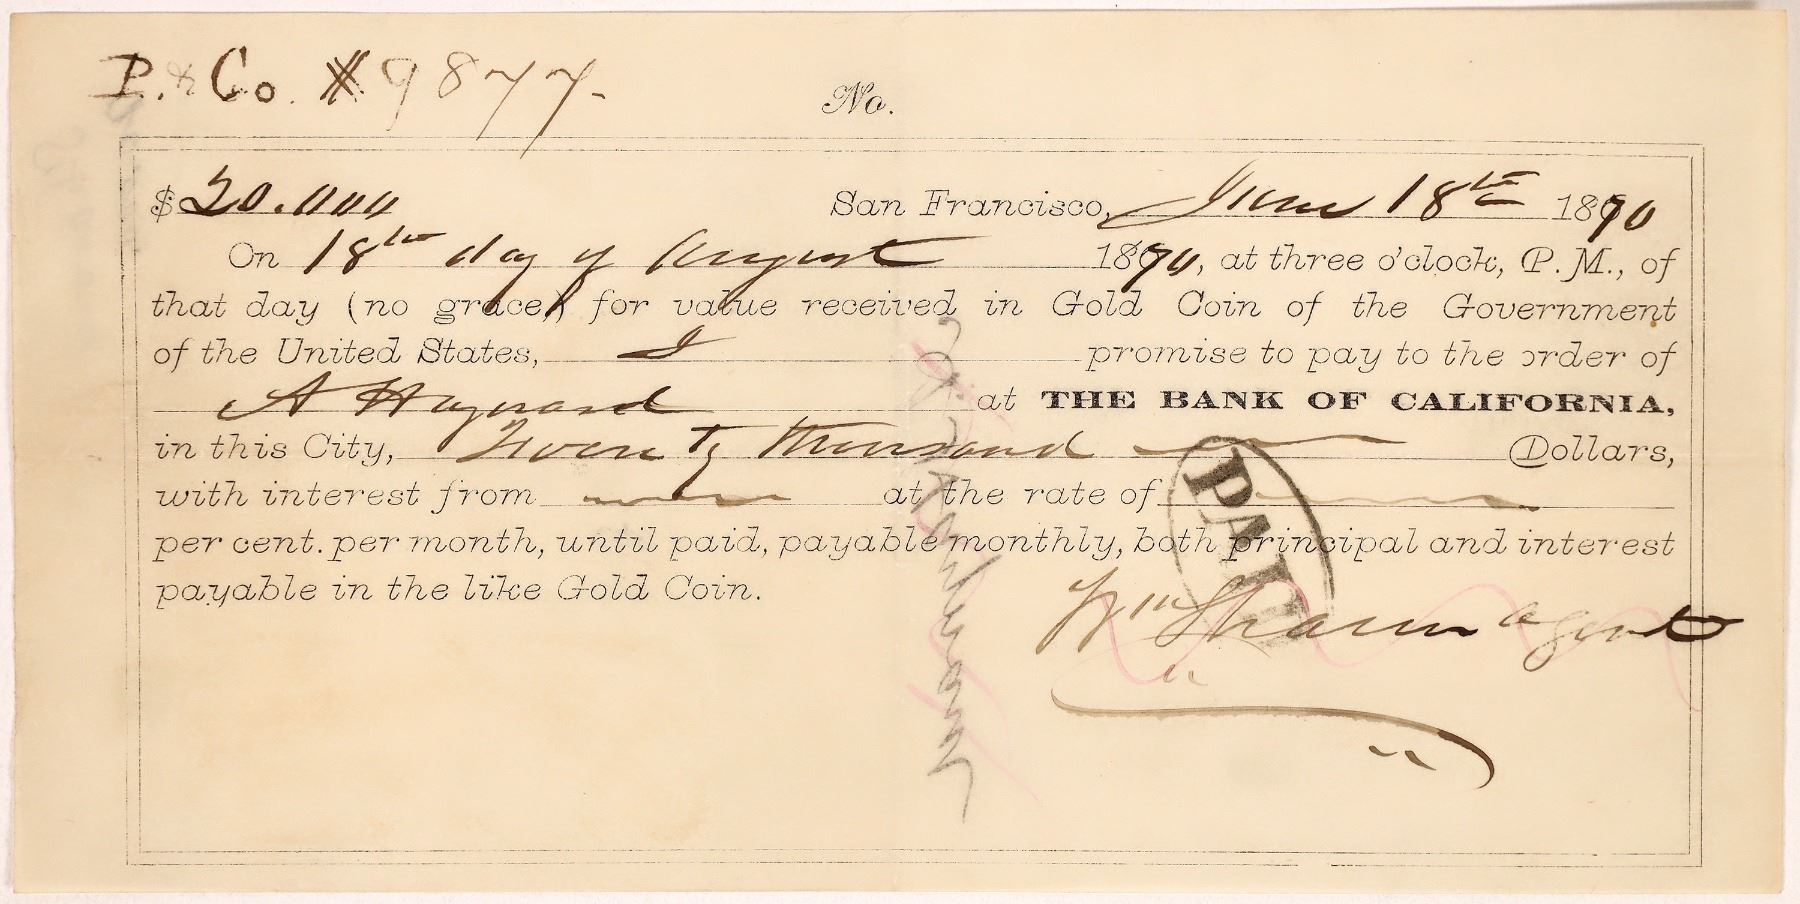 P. & Co. # 9877.
No.
$ 20.000 San Francisco, June 18th 1870
On 18th day of August 1870, at three o'clock, P. M., of
that day (no grace,) for value received in Gold Coin of the Government
of the United States, I promise to pay to the order of
A Hayward at THE BANK OF CALIFORNIA,
in this City, Twenty thousand Dollars,
with interest from at the rate of
per cent. per month, until paid, payable monthly, both principal and interest
payable in the like Gold Coin.
PAID
Wm Sharon agent